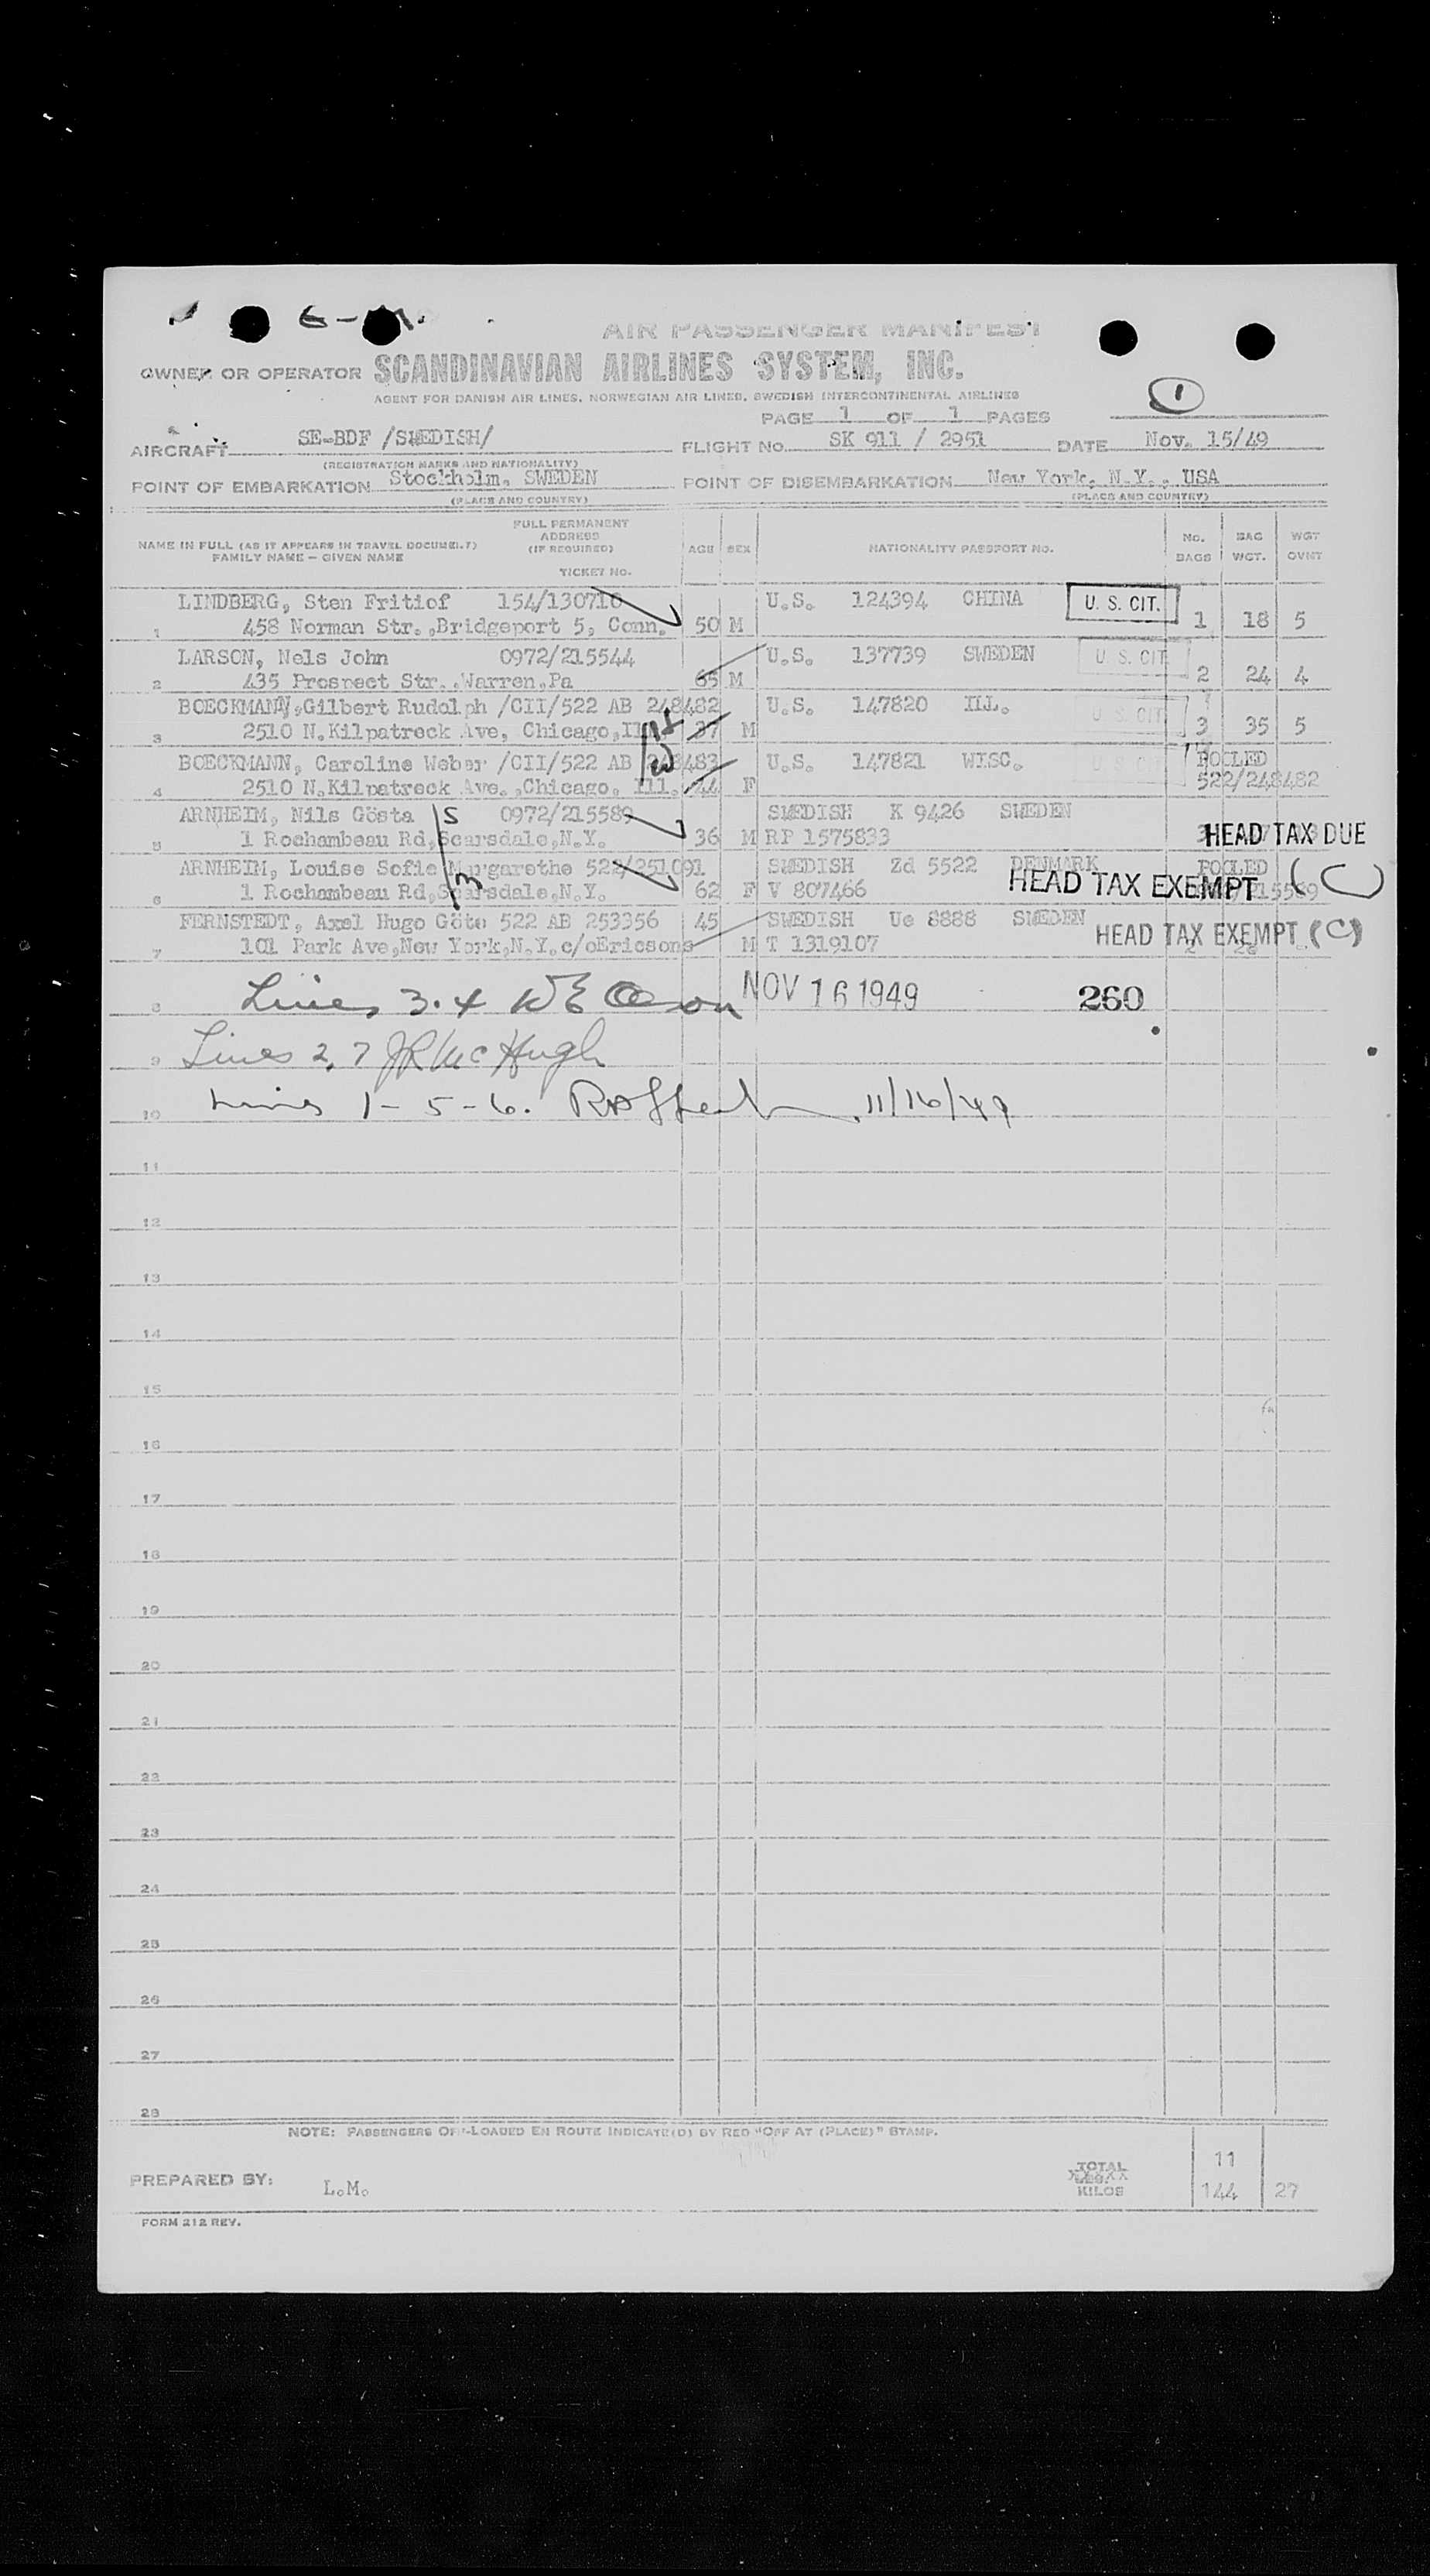 AIR PASSENGER MANIFEST
OWNER OR OPERATOR SCANDINAVIAN AIRLINES SYSTEM, INC.
AGENT FOR DANISH AIR LINES, NORWEGIAN AIR LINES, SWEDISH INTERCONTINENTAL AIRLINES
1
PAGE 1 OF 1 PAGES
AIRCRAFT SE-BDF /SWEDISH/ FLIGHT NO. SK 911 / 2951 DATE Nov. 15/49
(REGISTRATION MARKS AND NATIONALITY)
POINT OF EMBARKATION Stockholm, SWEDEN POINT OF DISEMBARKATION New York, N.Y., USA
(PLACE AND COUNTRY) (PLACE AND COUNTRY)
NAME IN FULL (AS IT APPEARS IN TRAVEL DOCUMENT)
FAMILY NAME — GIVEN NAME
FULL PERMANENT
ADDRESS
(IF REQUIRED)
TICKET NO.
AGE SEX NATIONALITY PASSPORT NO. NO. BAGS BAG WGT. WGT OVWT
LINDBERG, Sten Fritiof 154/130710 U.S. 124394 CHINA U. S. CIT.
1 458 Norman Str.,Bridgeport 5, Conn. 50 M 1 18 5
LARSON, Nels John 0972/215544 U.S. 137739 SWEDEN U. S. CIT.
2 435 Prospect Str.,Warren,Pa 65 M 2 24 4
BOECKMANN,Gilbert Rudolph /CII/522 AB 248482 U.S. 147820 ILL. U. S. CIT.
3 2510 N.Kilpatreck Ave, Chicago,Ill 37 M 3 35 5
BOECKMANN, Caroline Weber /CII/522 AB 248483 U.S. 147821 WISC. U. S. CIT. POOLED
4 2510 N.Kilpatreck Ave.,Chicago, Ill. 44 F 522/248482
ARNHEIM, Nils Gösta S 0972/215589 SWEDISH K 9426 SWEDEN
5 1 Rochambeau Rd,Scarsdale,N.Y. 36 M RP 1575833 HEAD TAX DUE
ARNHEIM, Louise Sofie Margarethe 522/251091 SWEDISH Zd 5522 DENMARK POOLED
6 1 Rochambeau Rd,Scarsdale,N.Y. 62 F V 807466 HEAD TAX EXEMPT (C)
FERNSTEDT, Axel Hugo Göte 522 AB 253356 45 SWEDISH Ue 8888 SWEDEN
7 101 Park Ave,New York,N.Y.c/oEricsons M T 1319107 HEAD TAX EXEMPT (C)
8 Lines 3.4 NOV 16 1949 260
9 Lines 2,7 JR McHugh
10 Lines 1-5-6. 11/16/49
11
12
13
14
15
16
17
18
19
20
21
22
23
24
25
26
27
28
NOTE: PASSENGERS OFF-LOADED EN ROUTE INDICATE(D) BY RED "OFF AT (PLACE)" STAMP.
PREPARED BY: L.M. TOTAL 11
KILOS 144 27
FORM 212 REV.